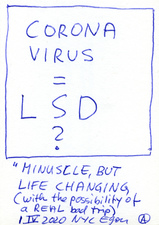 CORONA
VIRUS
=
LSD
?
"MINUSCLE, BUT
LIFE CHANGING,
(with the possibility of
a REAL bad trip)
1 IV 2020 NYC Egon A